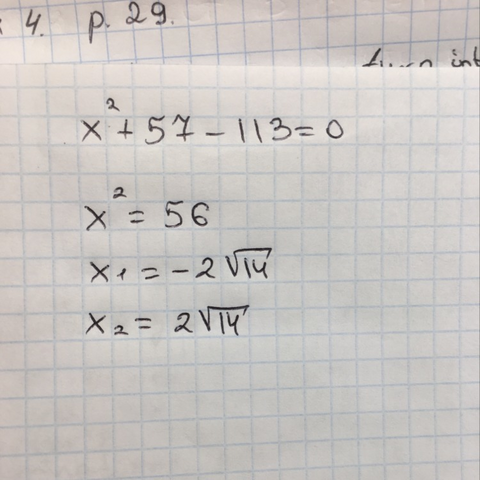 4. p. 29.
x² + 57 - 113 = 0
x² = 56
x₁ = -2√14
x₂ = 2√14